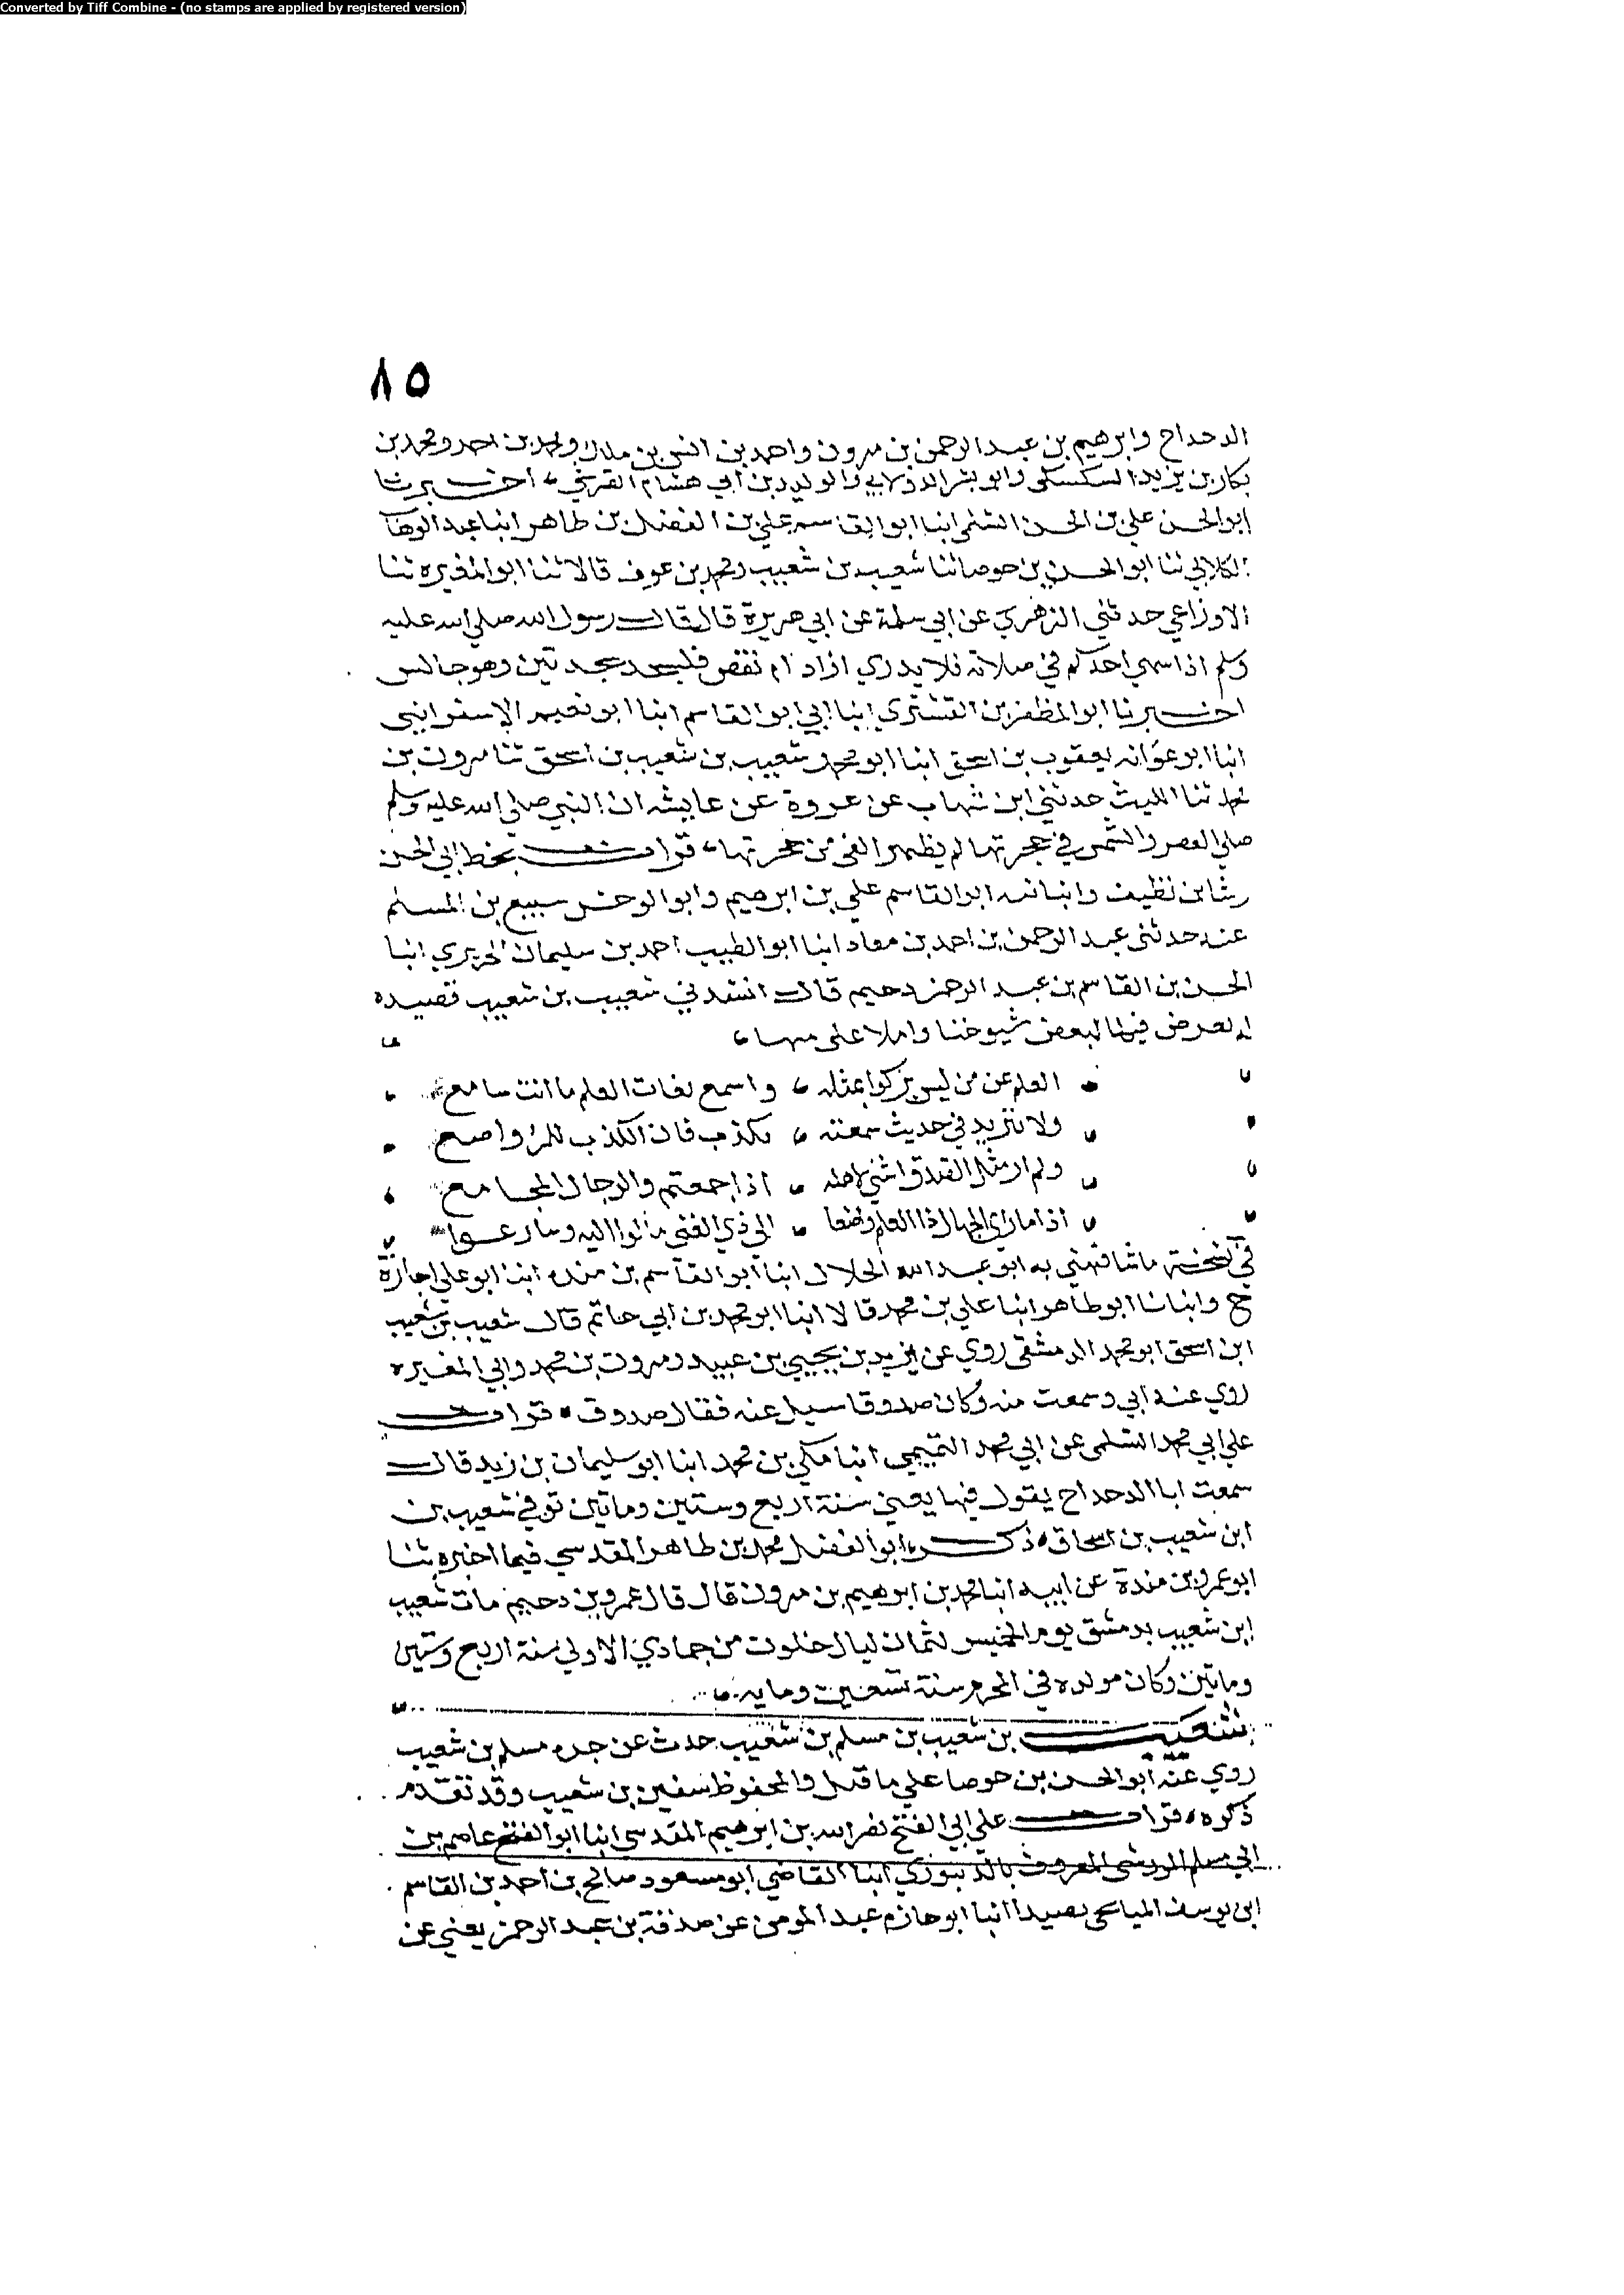 Converted by Tiff Combine - (no stamps are applied by registered version)
٨٥
الدحداح وابرهيم بن عبد الرحمن بن مرون واحمد بن انس بن مالك ومحمد بن احمد ومحمد بن
بكار بن يزيد السكسكي وابو بشر الدولابي والوليد بن ابي هشام القرشي اخبرنا
ابو الحسن علي بن الحسن السلمي انبا ابو القاسم علي بن الفضل بن طاهر انبا عبد الوهاب
الكلابي ثنا ابو الحسن بن حوصا ثنا شعيب بن شعيب ومحمد بن عوف قالا ثنا ابو المغيره ثنا
الاوزاعي حدثني الزهري عن ابي سلمة عن ابي هريرة قال قال رسول الله صلى الله عليه
وسلم اذا سهى احدكم في صلاته فلا يدري ازاد ام نقص فليسجد سجدتين وهو جالس
اخبرنا ابو المظفر بن القشيري انبا ابي ابو القاسم انبا ابو نعيم الاسفرايني
انبا ابو عوانه يعقوب بن اسحق انبا ابو محمد شعيب بن شعيب بن اسحق ثنا مرون بن
محمد ثنا الليث حدثني ابن شهاب عن عروة عن عايشه ان النبي صلى الله عليه وسلم
صلى العصر والشمس في حجرتها لم يظهر الفي من حجرتها قرات بخط ابي الحسن
رشا بن نظيف وانبانيه ابو القاسم علي بن ابرهيم وابو الوحش سبيع بن المسلم
عنه حدثني عبد الرحمن بن احمد بن معاد انبا ابو الطيب احمد بن سليمان الجريري انبا
الحسن بن القاسم بن عبد الرحمن دحيم قال انشدني شعيب بن شعيب قصيده
له يعرض فيها لبعض شيوخنا واملا على منها
العلم عن من ليس يزكوا بمثله واسمع لغات العلم ما انت سامع
ولا تتزيد في حديث سمعته بكذب فان الكذب للمرا واضع
ولم ار مثل الصدق اسنى لاهله اذا جمعتهم والرجال المجامع
اذا ما راى الجهال ذا العلم واضعا الى ذي الغنى مالوا اليه وسارعوا
في نسخة ما شافهني به ابو عبد الله الخلال انبا ابو القاسم بن منده انبا ابو علي اجازة
ح وانبانا ابو طاهر انبا علي بن محمد قالا انبا ابو محمد بن ابي حاتم قال شعيب بن شعيب
ابن اسحق ابو محمد الدمشقي روي عن يزيد بن يحيى بن عبيد ومرون بن محمد وابي المغيره
روي عنه ابي وسمعت منه وكان صدوقا سيل عنه فقال صدوق قرات
علي ابي محمد السلمي عن ابي محمد التميمي انبا مكي بن محمد انبا ابو سليمان بن زيد قال
سمعت ابا الدحداح يقول فيها يعني سنة اربع وستين وماتين توفي شعيب بن
ابن شعيب بن اسحاق ذكر ابو الفضل محمد بن طاهر المقدسي فيما اخبره ثنا
ابو عمرو بن مندة عن ابيه انبا محمد بن ابرهيم بن مرون قال قال عمرو بن دحيم مات شعيب
ابن شعيب بدمشق يوم الخميس لثمان ليال خلون من جمادي الاولى سنة اربع وستين
وماتين وكان مولده في المحرم سنة تسعين ومايه
شعيب بن شعيب بن مسلم بن شعيب حدث عن جده مسلم بن شعيب
روي عنه ابو الحسن بن حوصا علي ما قيل والمحفوظ سفين بن شعيب وقد تقدم
ذكره قرات علي ابي الفتح نصر الله بن ابرهيم المقدسي انبا ابو الفتح عاصم بن
ابي مسلم المعروف بالدينوري انبا القاضي ابو مسعود صالح بن احمد بن القاسم
ابن يوسف الميانجي بصيدا انبا ابو حازم عبد المومن عن صدقة بن عبد الرحمن يعني عن